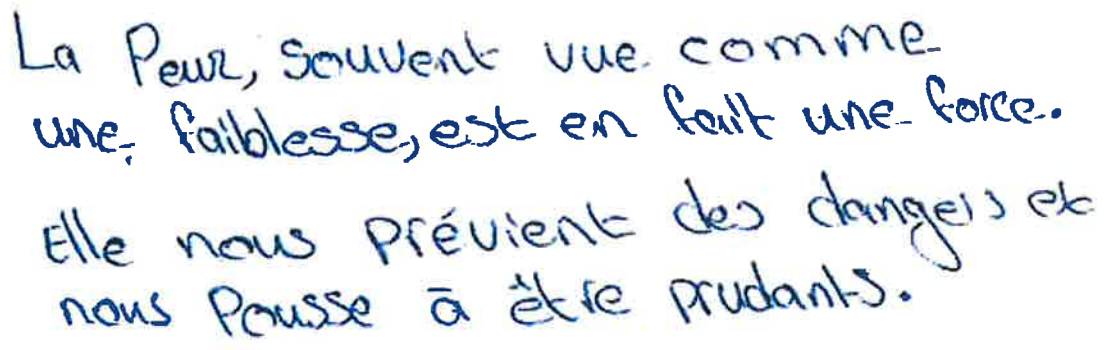 La Peur, souvent vue comme
une faiblesse, est en fait une force.
Elle nous prévient des dangers et
nous Pousse à être prudants.